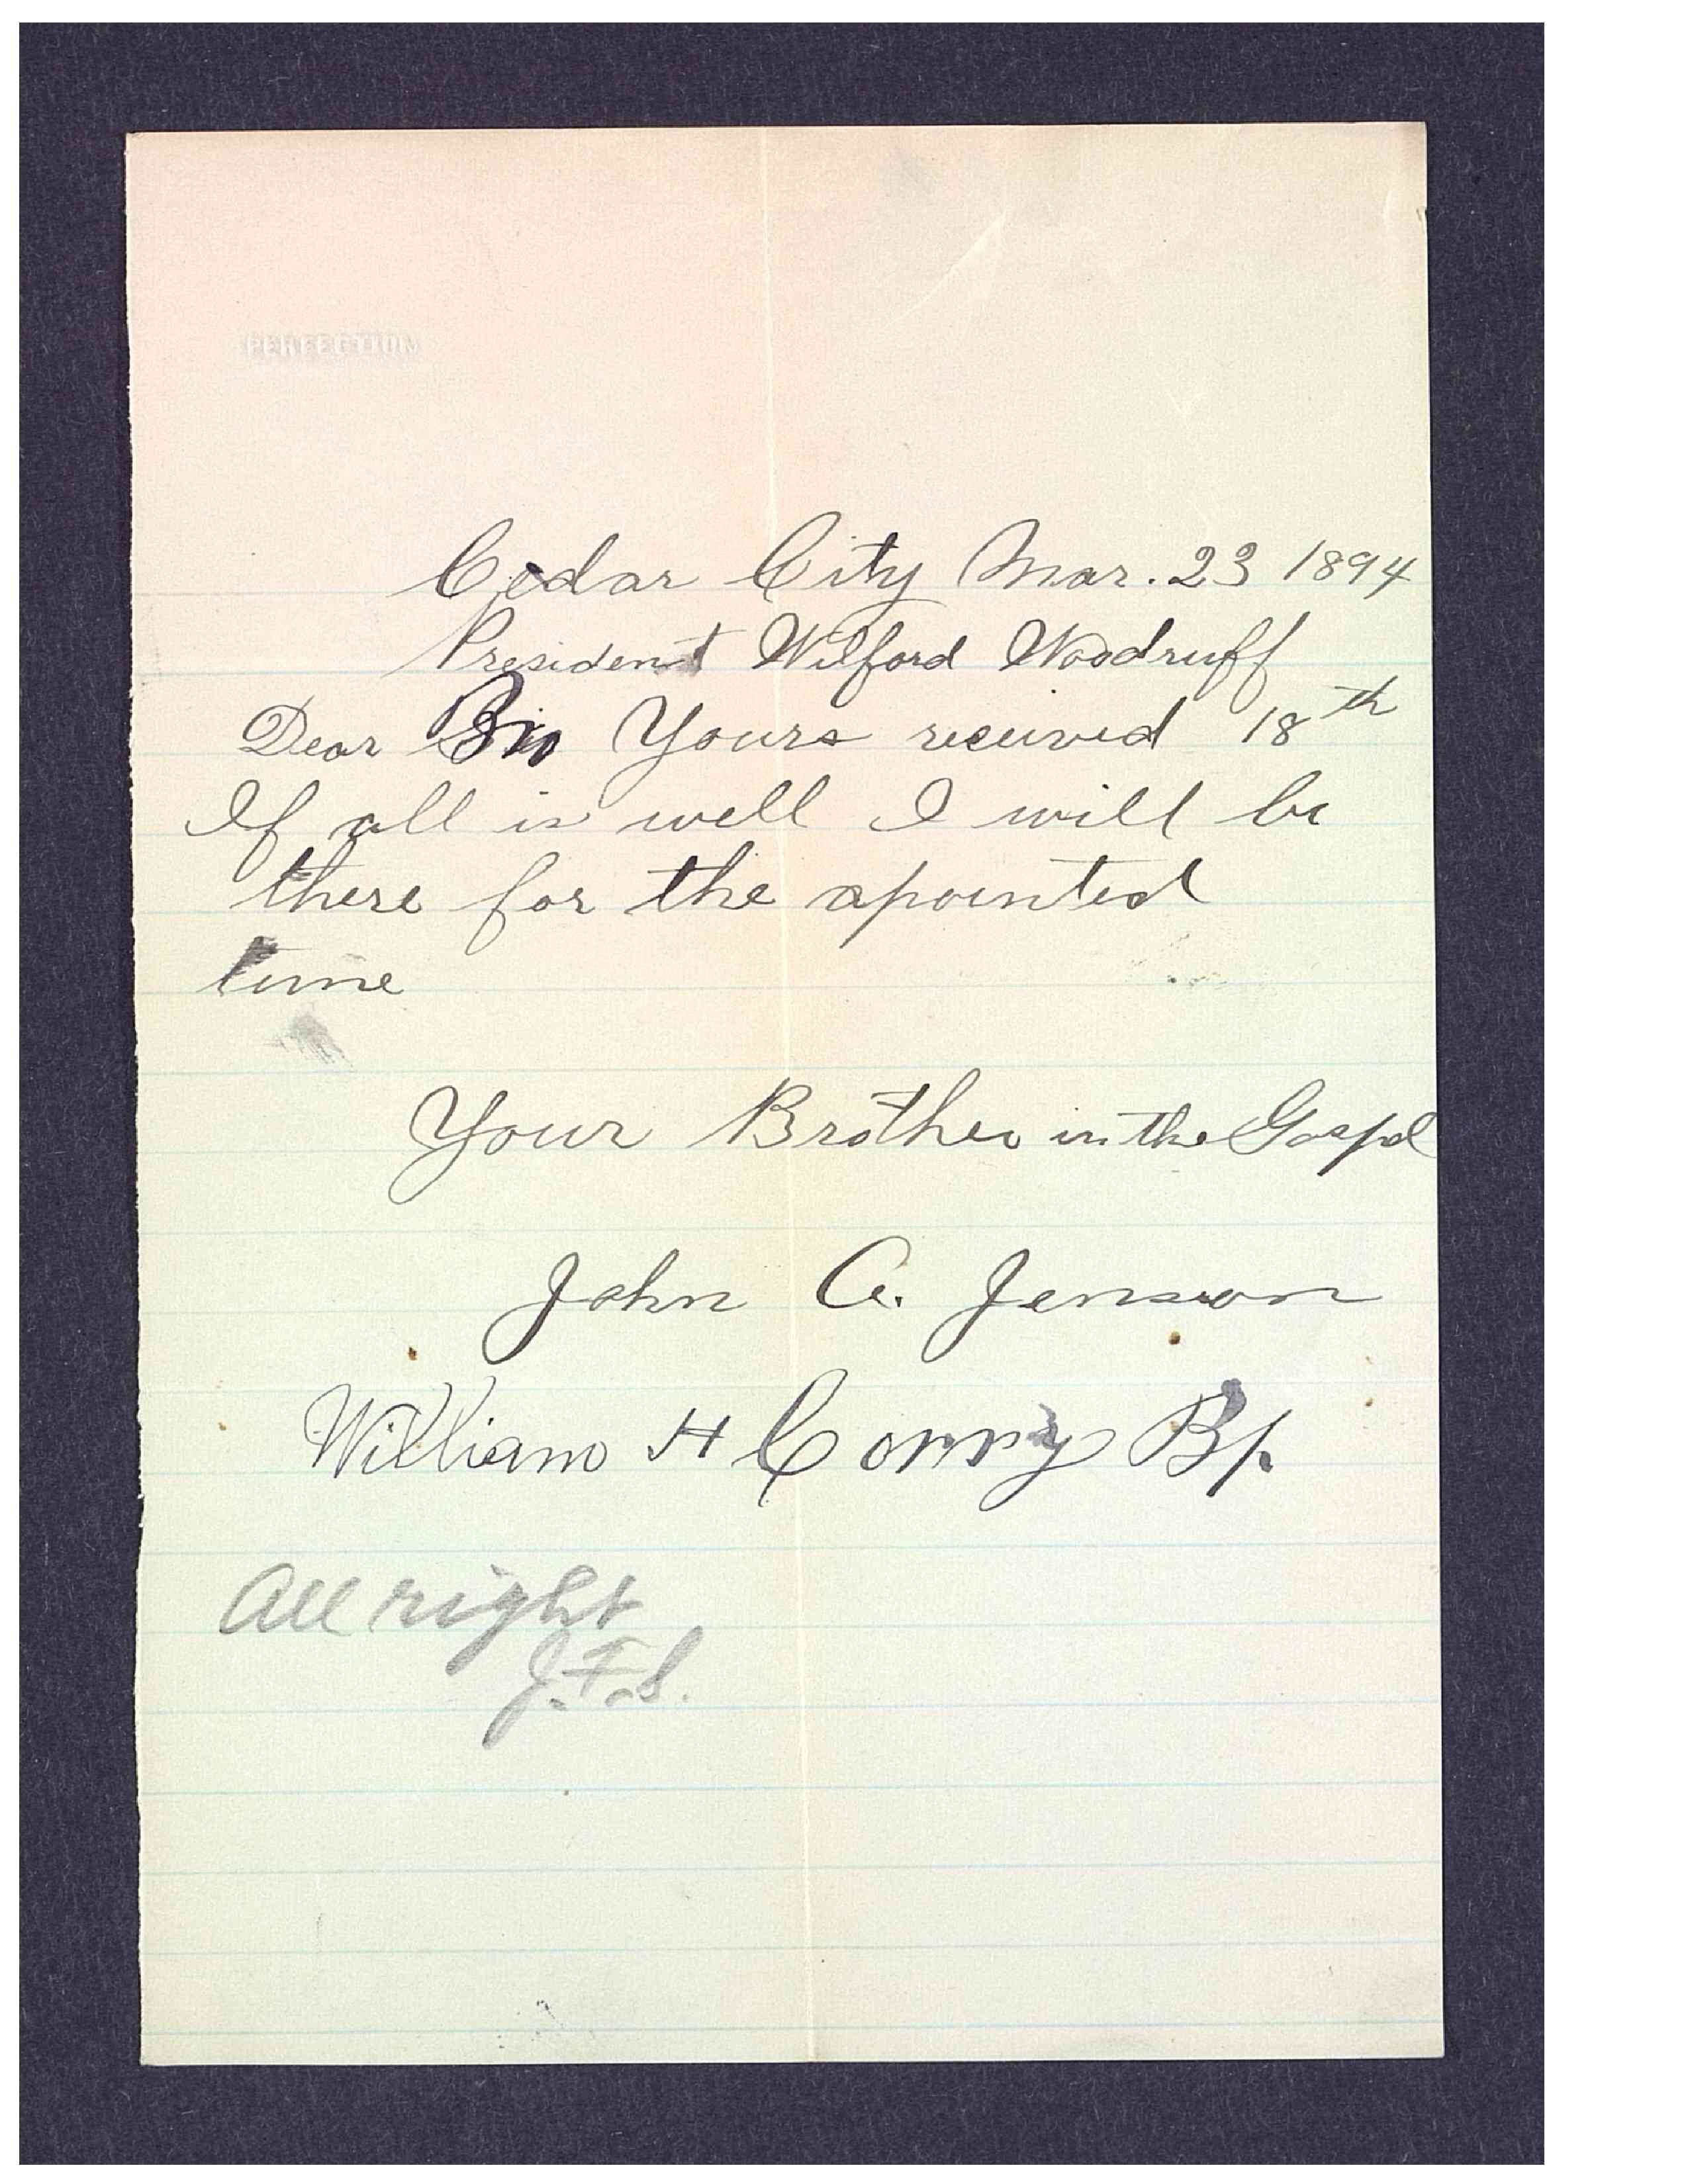 PERFECTION
Cedar City Mar. 23 1894
President Wilford Woodruff
Dear Bro Yours received 18th
If all is well I will be
there for the apointed
time
Your Brother in the Gospel
John A. Jenson
William H Corry Bp.
All right
J.F.S.